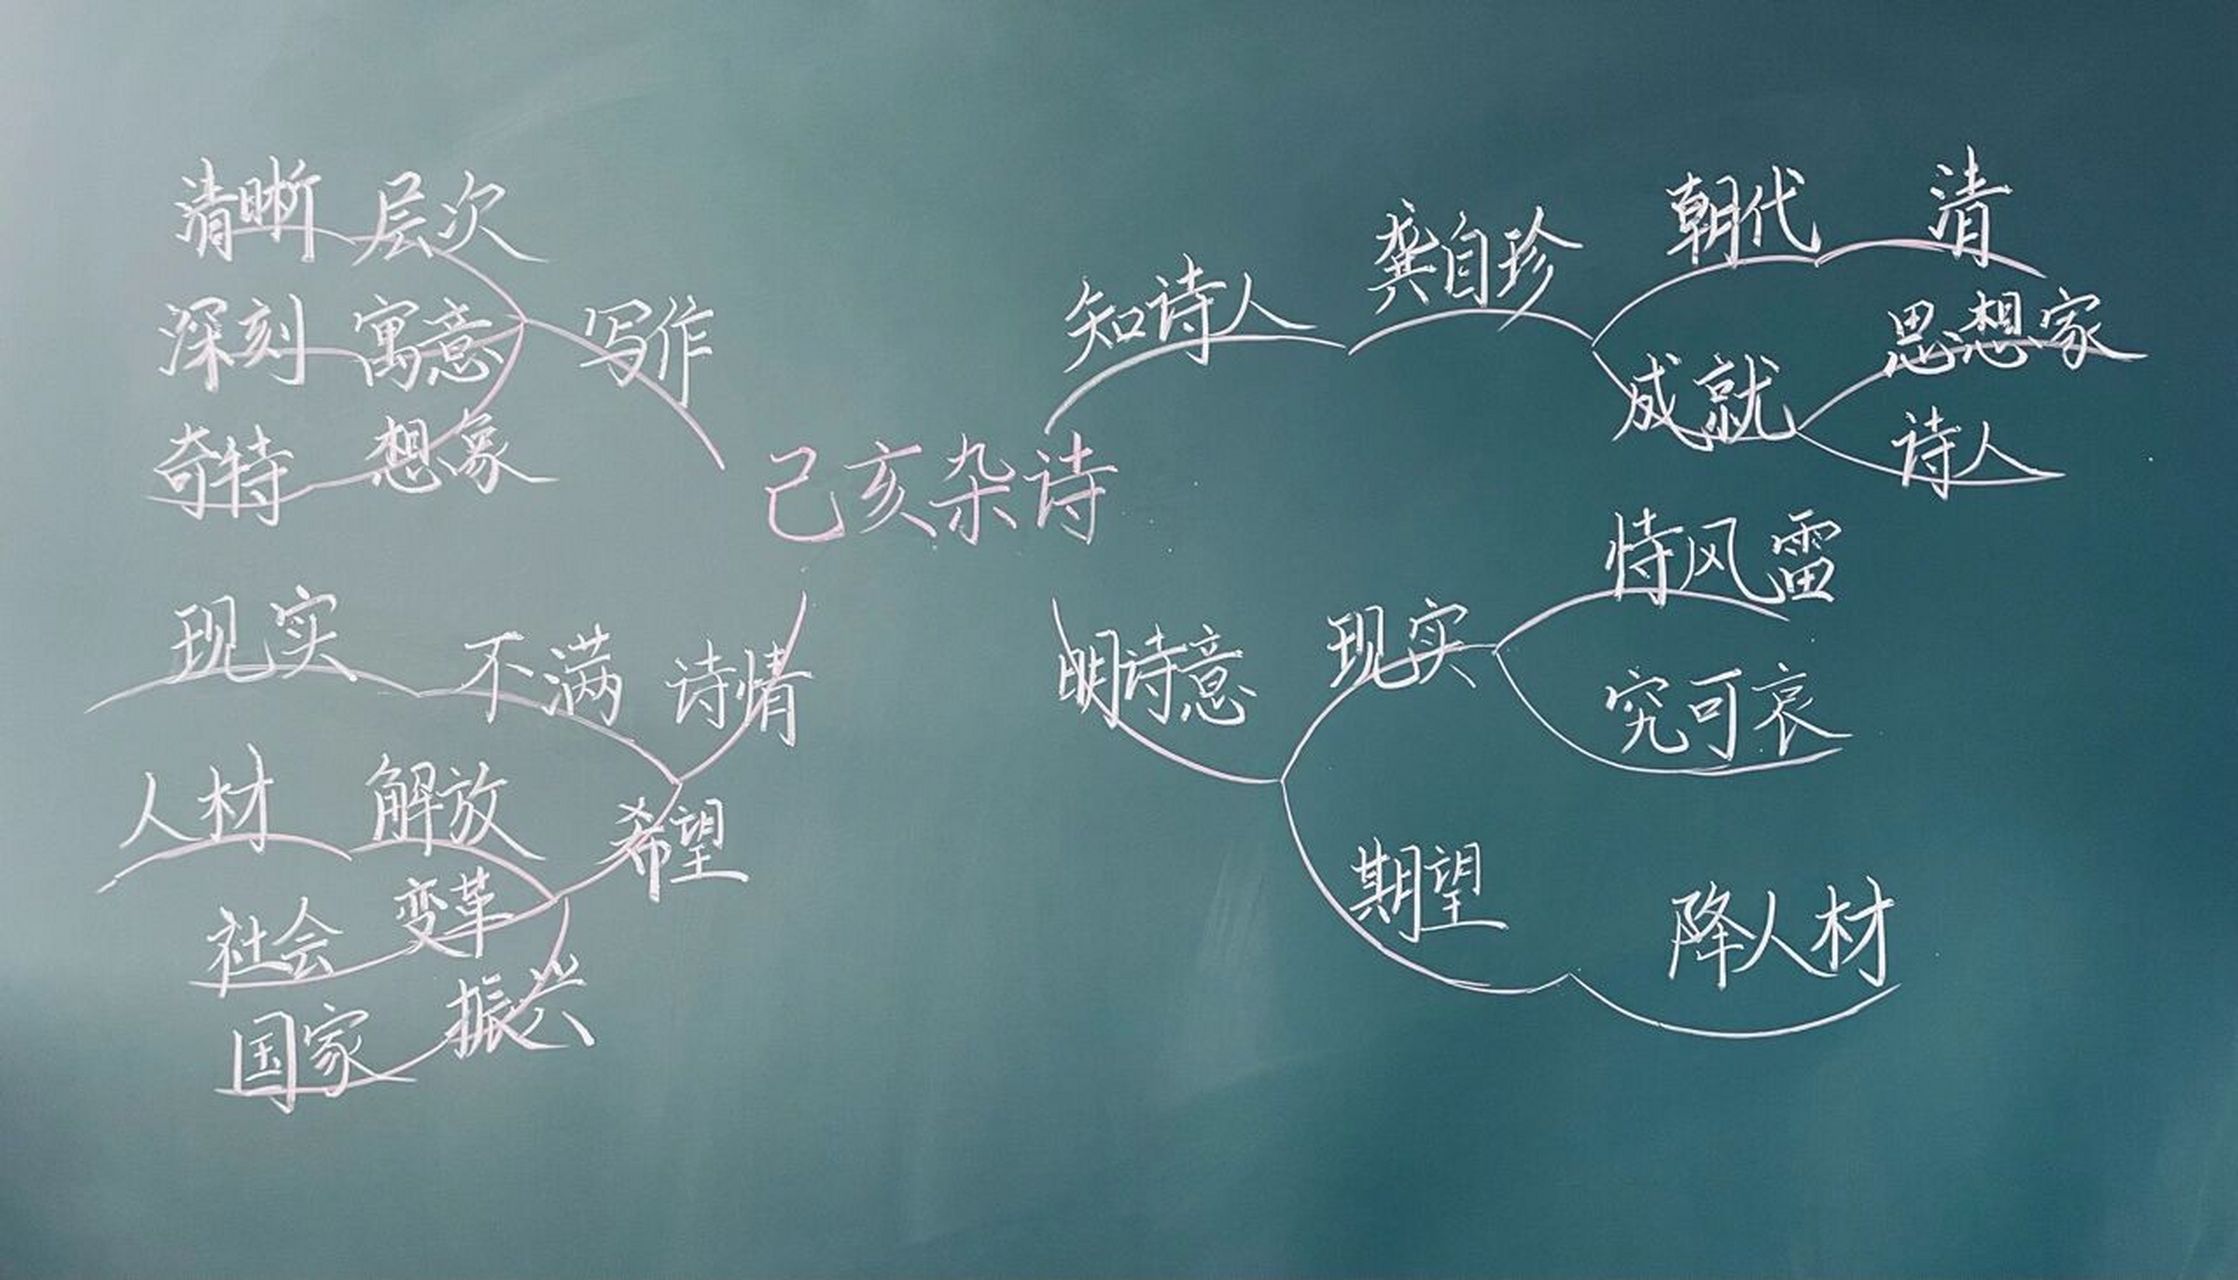 己亥杂诗
知诗人 龚自珍
朝代 清
成就
思想家
诗人
明诗意
现实
恃风雷
究可哀
期望
降人材
诗情
不满 现实
希望
解放 人材
变革 社会
振兴 国家
写作
层次 清晰
寓意 深刻
想象 奇特